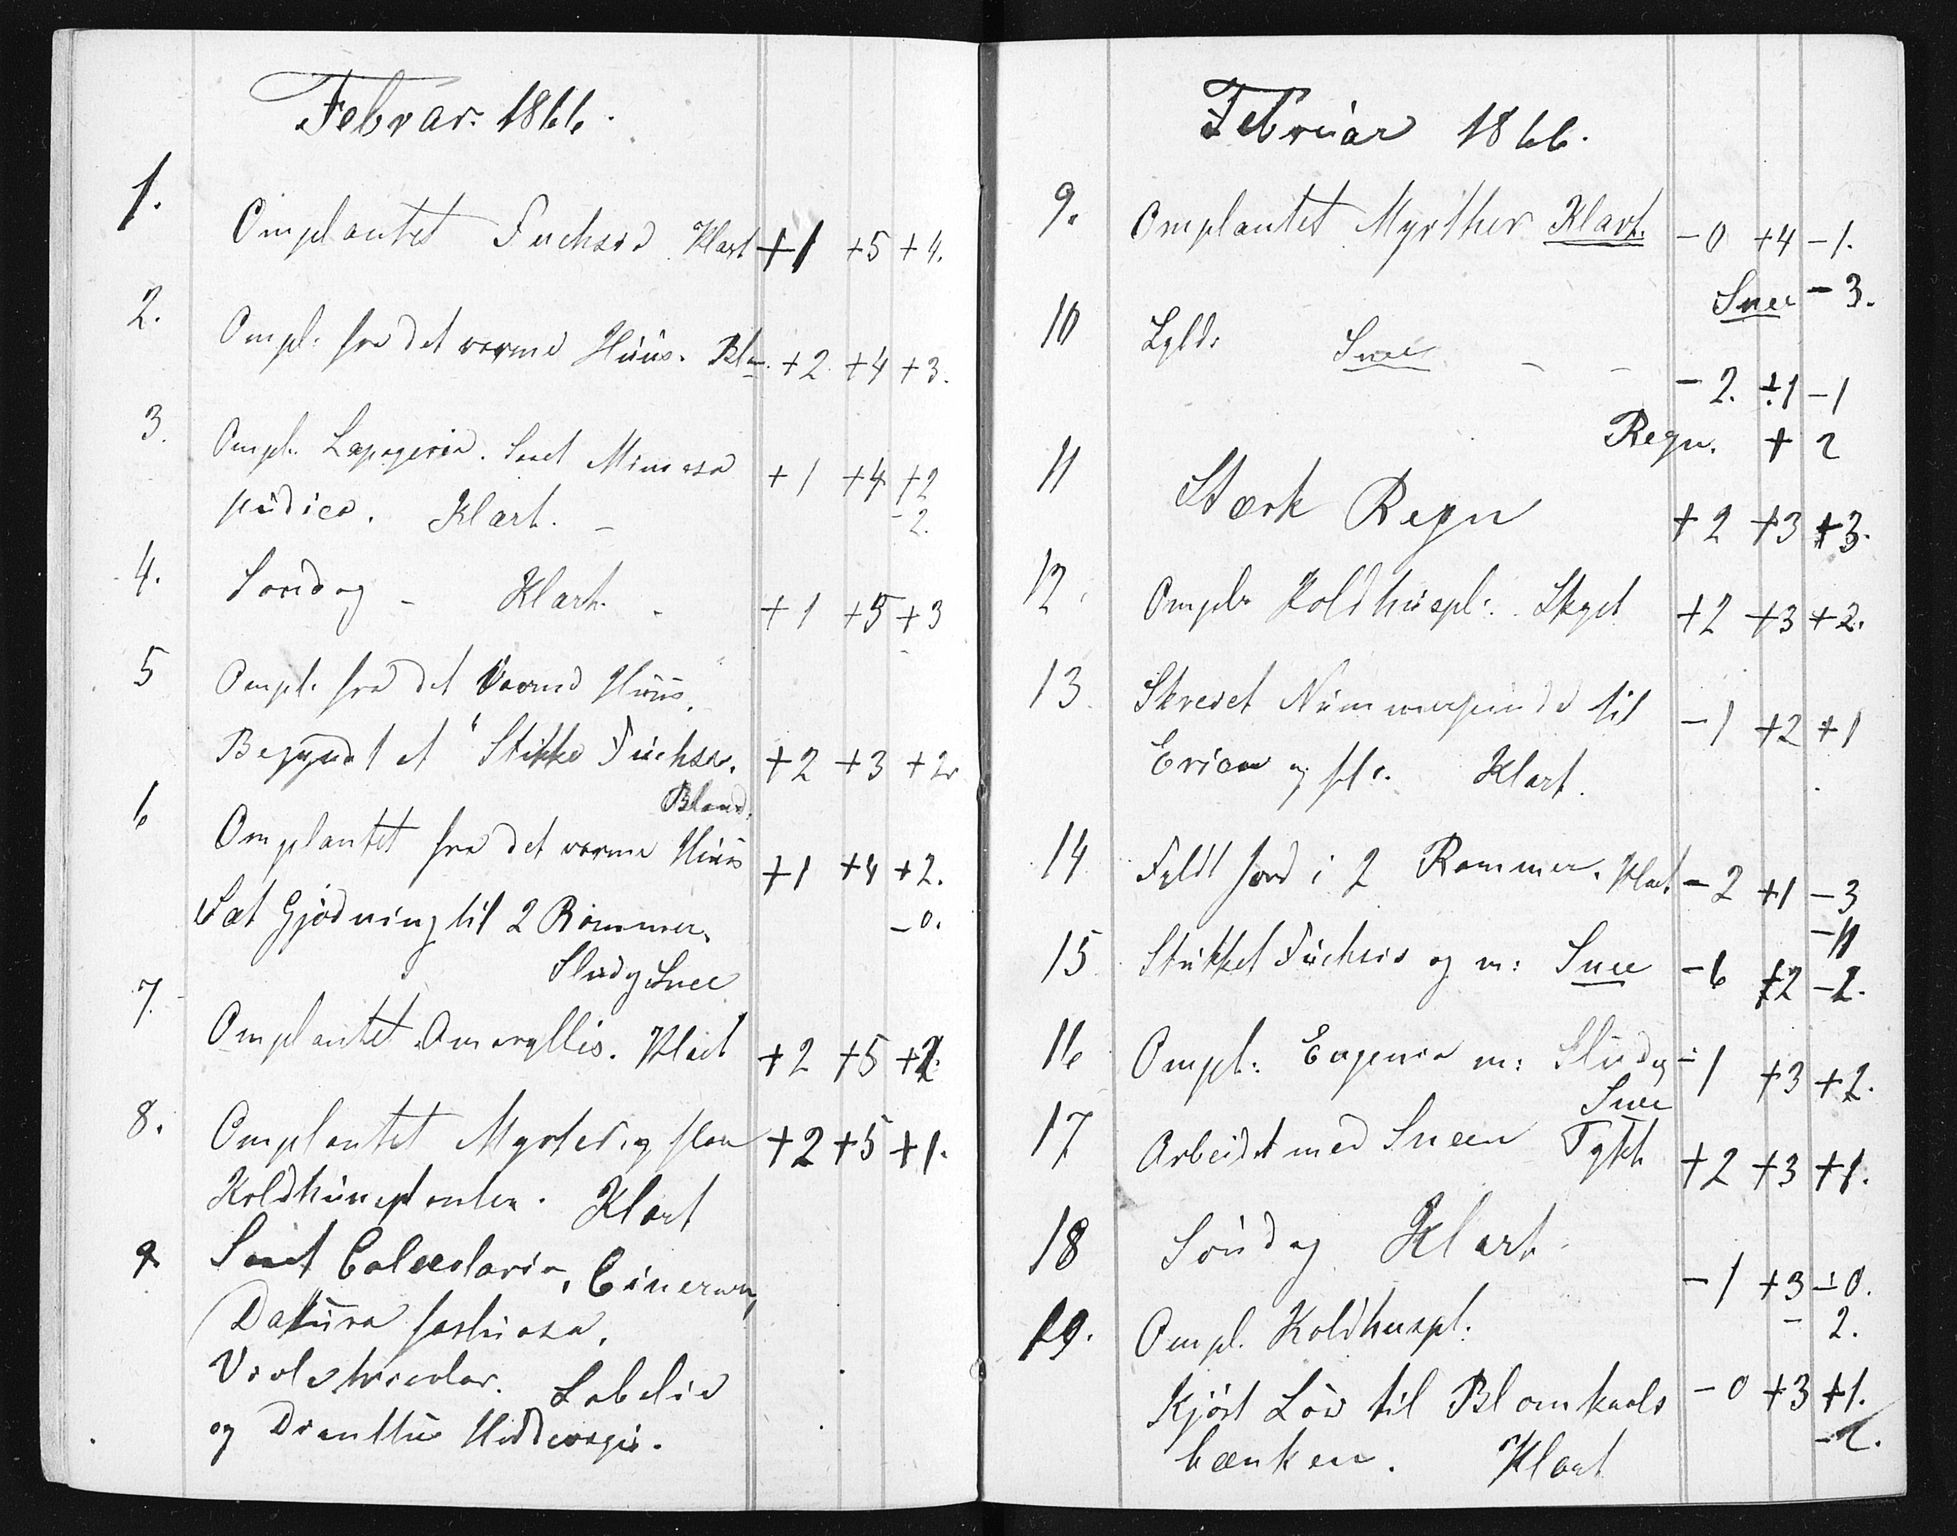 Februar. 1866.
1.
Omplantet Fuchsia Klart +1 +5 +4.
2.
Ompl. fra det varme Huus. +2 +4 +3.
3.
Ompl. Lapageria. Saaet Mimosa +1 +4 +2
pudica. Klart. - -2.
4.
Søndag - Klart. - +1 +5 +3
5
Ompl. fra det Varme Huus.
Begyndt at Stikke Fuchsia. +2 +3 +2.
Bland.
6
Omplantet fra det varme Huus +1 +4 +2.
Sat Gjødning til 2 Rammer. -0.
Slud og Snee
7.
Omplantet Amaryllis. Klart +2 +5
8.
Omplantet Myrter og flere +2 +5 +1.
Koldhuusplanter. Klart
9 Saaet Calceolaria, Cineraria,
Datura fastuosa.
Viola tricolor. Lobelia
og Dianthus Heddewigii.
Februar 1866.
9. Omplantet Myrther Klart. -0 +4 -1.
Snee -3.
10 Snee - -
-2. +1 -1
Regn. +2
11 Stærk Regn +2 +3 +3.
12. Ompl. Koldhuspl: Skyet +2 +3 +2.
13 Skrevet Nummerpinde til -1 +2 +1
Erica og fl.. Klart.
14 Fyldt Jord i 2 Rammer. Klart -2 +1 -3
-11
15 Stikket Fuchsia og m: Snee -6 +2 -2.
16 Ompl: Eugenia m: Slud og -1 +3 +2.
Snee
17 Arbeidet med Sneen Tykt +2 +3 +1.
18 Søndag Klart
-1 +3 -0.
19. Ompl. Koldhuspl: -2.
Kjørt Løv til Blomkaals -0 +3 +1.
bænken. Klart -2.